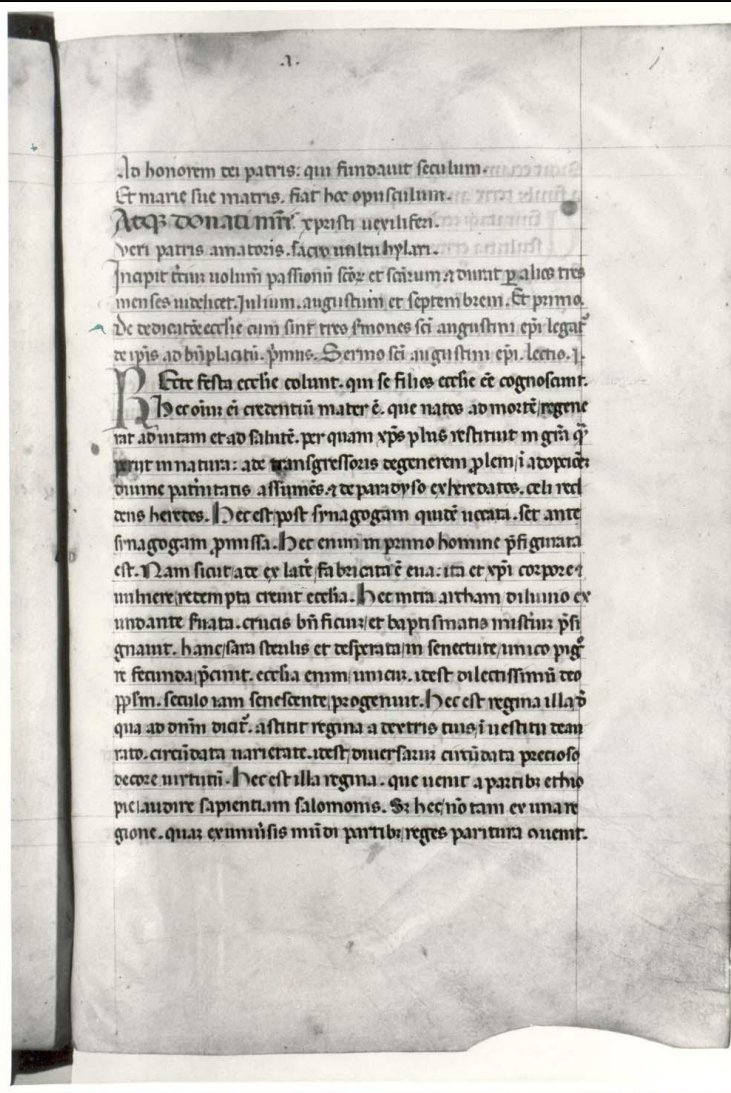 .1.
Ad honorem dei patris: qui fundauit seculum.
Et marie sue matris. fiat hoc opusculum.
Atq; donati mr̃is xpristi uexiliferi.
Veri patris amatoris. facio uultu hylari.
Incipit t̃ciuꝫ uolum̃ passionũ sc̃oꝝ et sc̃arum ⁊ durat p̱ alios tres
menses uidelicet. Julium. augustum et septembrem. Et primo.
De dedicat̃õe ecclsie cum sint tres s̃mones sc̃i augustini ep̃i legat᷑
de ip̃is ad bñplacitũ. p̃mus. Sermo sc̃i augustini ep̃i. lectio. j.
REcte festa ecclsie colunt. qui se filios ecclsie ẽẽ cognoscunt.
Hec oĩuꝫ ei credentiũ mater ẽ. que natos ad mortẽ regene
rat ad uitam et ad salutẽ. per quam xp̃s plus restituit in gr̃a q̃ꝫ
perijt in natura: ade transgressoris degenerem ꝓlem, ĩ adoptõeꝫ
diuine pat̃nitatis assumẽs. ⁊ de paradyso exheredatos. celi red
dens heredes. Hec est post synagogam quidẽ uocata. set ante
synagogam ꝓmissa. Hec enim in primo homine p̃figurata
est. Nam sicut ade ex late᷑ fabricata ẽ eua: ita et xp̃i corpore ĩ
uulnere redempta creuit ecclsia. Hec intra archam diluuio ex
undante seruata. crucis bñficiuꝫ et baptismatis mist̃iuꝫ p̃si
gnauit. hanc sara sterilis et desperata in senectute, unico pigñ
re fecunda p̃cinuit. ecclsia enim unicuꝫ. idest dilectissimũ deo
pp̃lm. seculo iam senescente progenuit. Hec est regina illa d̃
qua ad dñm dicit᷑. astitit regina a dextris tuis, ĩ uestitu deau
rato. circũdata uarietate. idest diuersaruꝫ circũdata precioso
decore uirtutũ. Hec est illa regina. que uenit a partibꝫ ethio
pie audire sapientiam salomonis. Sꝫ hec nõ tam ex una re
gione. quaꝫ ex uniũsis mũdi partibꝫ reges paritura ouenit.